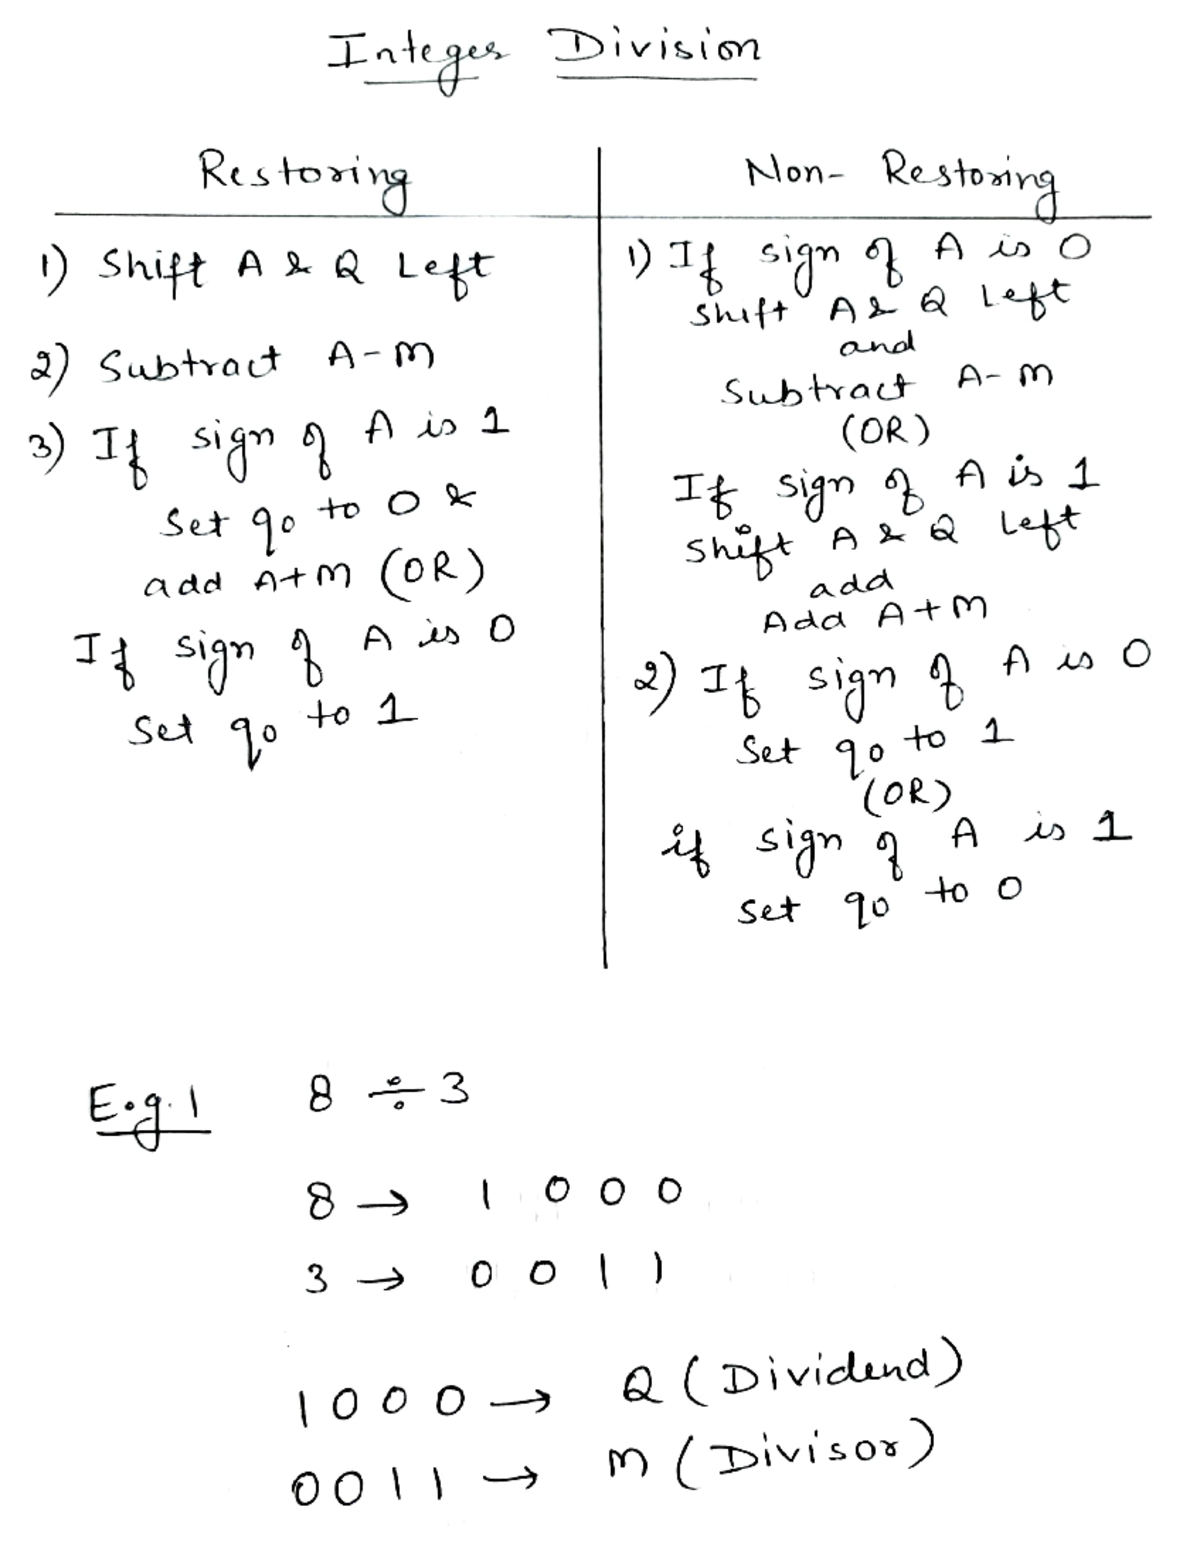 Integer Division
Restoring
1) Shift A & Q Left
2) Subtract A-M
3) If sign of A is 1
Set q0 to 0 &
add A+M (OR)
If sign of A is 0
Set q0 to 1
Non-Restoring
1) If sign of A is 0
Shift A & Q Left
and
Subtract A-M
(OR)
If sign of A is 1
Shift A & Q Left
add
Add A+M
2) If sign of A is 0
Set q0 to 1
(OR)
if sign of A is 1
Set q0 to 0
E.g.1 8 ÷ 3
8 → 1 0 0 0
3 → 0 0 1 1
1 0 0 0 → Q (Dividend)
0 0 1 1 → M (Divisor)